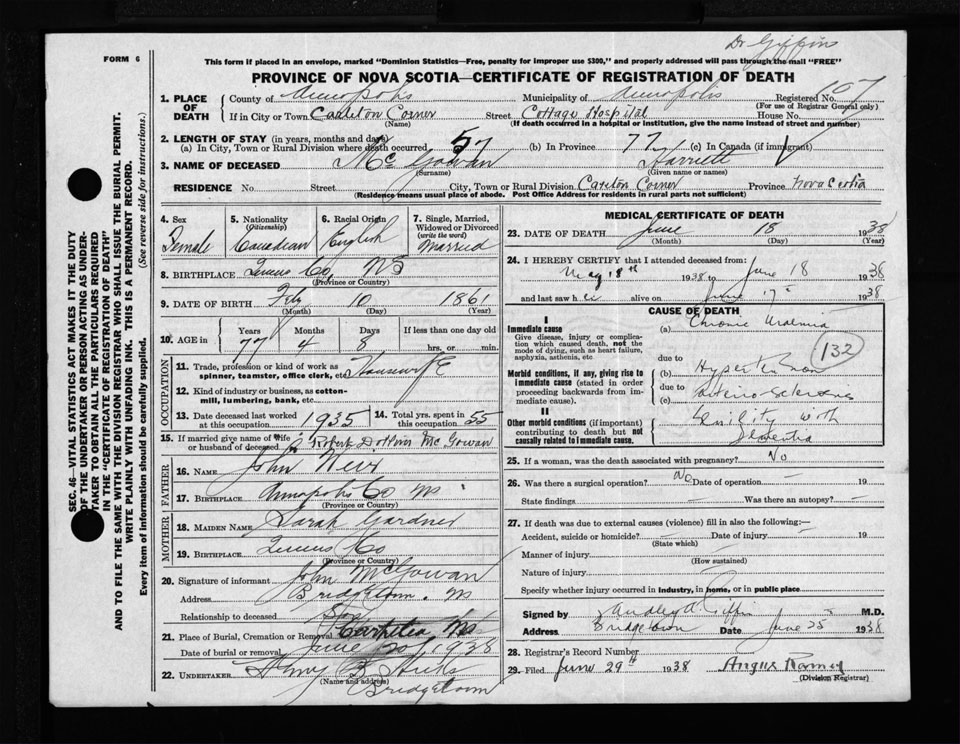 Dr Giffin
FORM 6
This form if placed in an envelope, marked "Dominion Statistics—Free, penalty for improper use $300," and properly addressed will pass through the mail "FREE"
PROVINCE OF NOVA SCOTIA—CERTIFICATE OF REGISTRATION OF DEATH
SEC. 46—VITAL STATISTICS ACT MAKES IT THE DUTY
OF THE UNDERTAKER OR PERSON ACTING AS UNDER-
TAKER TO OBTAIN ALL THE PARTICULARS REQUIRED
IN THE "CERTIFICATE OF REGISTRATION OF DEATH"
AND TO FILE THE SAME WITH THE DIVISION REGISTRAR WHO SHALL ISSUE THE BURIAL PERMIT.
WRITE PLAINLY WITH UNFADING INK. THIS IS A PERMANENT RECORD.
Every item of Information should be carefully supplied. (See reverse side for instructions.)
1. PLACE OF DEATH County of Annapolis Municipality of Annapolis Registered No. 107
(For use of Registrar General only)
If in City or Town Carleton Corner Street Cottage Hospital House No.
(Name) (If death occurred in a hospital or institution, give the name instead of street and number)
2. LENGTH OF STAY (in years, months and days)
(a) In City, Town or Rural Division where death occurred 57 (b) In Province 77 (c) In Canada (if immigrant)
3. NAME OF DECEASED McGowan Harriett
(Surname) (Given name or names)
RESIDENCE No. Street City, Town or Rural Division Carleton Corner Province Nova Scotia
(Residence means usual place of abode. Post Office Address for residents in rural parts not sufficient)
4. Sex 5. Nationality (Citizenship) 6. Racial Origin 7. Single, Married, Widowed or Divorced (write the word)
Female Canadian English Married
8. BIRTHPLACE Queens Co, NS
(Province or Country)
9. DATE OF BIRTH Feb 10 1861
(Month) (Day) (Year)
10. AGE in Years Months Days If less than one day
77 4 8 hrs. or min.
OCCUPATION
11. Trade, profession or kind of work as spinner, teamster, office clerk, etc. Housewife
12. Kind of industry or business, as cotton-mill, lumbering, bank, etc.
13. Date deceased last worked at this occupation 1935 14. Total yrs. spent in this occupation 55
15. If married give name of wife or husband of deceased Robert McGowan
FATHER
16. Name John
17. Birthplace Annapolis Co NS
(Province or Country)
MOTHER
18. MAIDEN NAME Sarah Gardner
19. BIRTHPLACE Queens Co
(Province or Country)
20. Signature of informant John McGowan
Address Bridgetown, NS
Relationship to deceased Son
21. Place of Burial, Cremation or Removal NS
Date of burial or removal June 20, 1938
22. UNDERTAKER Henry B Hicks
(Name and address)
Bridgetown
MEDICAL CERTIFICATE OF DEATH
23. DATE OF DEATH June 18 1938
(Month) (Day) (Year)
24. I HEREBY CERTIFY that I attended deceased from:
May 18th 1938 to June 18 1938
and last saw her alive on June 17 1938
CAUSE OF DEATH
I
Immediate cause
Give disease, injury or complication which caused death, not the mode of dying, such as heart failure, asphyxia, asthenia, etc.
(a) Chronic Uraemia
132
due to
Morbid conditions, if any, giving rise to immediate cause (stated in order proceeding backwards from immediate cause).
(b) Hypertension
due to
(c) arterio sclerosis
II
Other morbid conditions (if important) contributing to death but not causally related to immediate cause.
Senility with
Dementia
25. If a woman, was the death associated with pregnancy? No
26. Was there a surgical operation? No Date of operation — 19
State findings — Was there an autopsy? —
27. If death was due to external causes (violence) fill in also the following:—
Accident, suicide or homicide? Date of injury 19
(State which)
Manner of injury
(How sustained)
Nature of injury
Specify whether injury occurred in industry, in home, or in public place
Signed by Giffin M.D.
Address Bridgetown Date June 25 1938
28. Registrar's Record Number
29. Filed June 29th 1938 Angus
(Division Registrar)